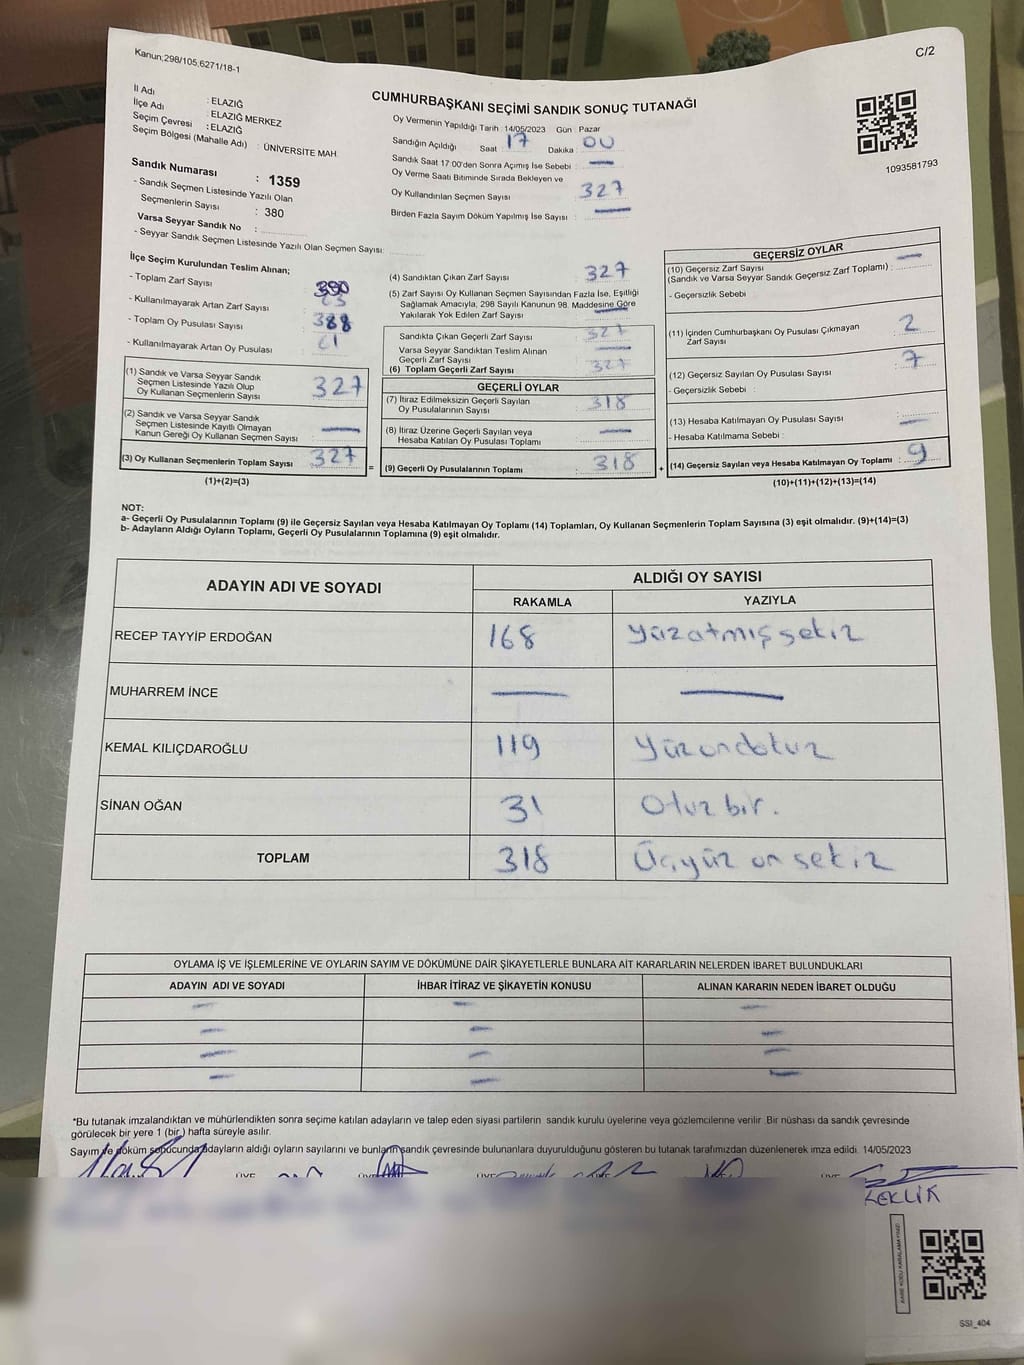 Kanun;298/105,6271/18-1
C/2
İl Adı : ELAZIĞ
İlçe Adı : ELAZIĞ MERKEZ
Seçim Çevresi : ELAZIĞ
Seçim Bölgesi (Mahalle Adı) : ÜNİVERSİTE MAH.
Sandık Numarası : 1359
- Sandık Seçmen Listesinde Yazılı Olan
Seçmenlerin Sayısı : 380
Varsa Seyyar Sandık No :
- Seyyar Sandık Seçmen Listesinde Yazılı Olan Seçmen Sayısı:
CUMHURBAŞKANI SEÇİMİ SANDIK SONUÇ TUTANAĞI
Oy Vermenin Yapıldığı Tarih : 14/05/2023 Gün : Pazar
Sandığın Açıldığı Saat : 17 Dakika : 00
Sandık Saat 17:00'den Sonra Açımış İse Sebebi : —
Oy Verme Saati Bitiminde Sırada Bekleyen ve
Oy Kullandırılan Seçmen Sayısı : 327
Birden Fazla Sayım Döküm Yapılmış İse Sayısı : —
1093581793
İlçe Seçim Kurulundan Teslim Alınan;
- Toplam Zarf Sayısı :
- Kullanılmayarak Artan Zarf Sayısı :
- Toplam Oy Pusulası Sayısı : 388
- Kullanılmayarak Artan Oy Pusulası : 61
(1) Sandık ve Varsa Seyyar Sandık
Seçmen Listesinde Yazılı Olup
Oy Kullanan Seçmenlerin Sayısı : 327
(2) Sandık ve Varsa Seyyar Sandık
Seçmen Listesinde Kayıtlı Olmayan
Kanun Gereği Oy Kullanan Seçmen Sayısı : —
(3) Oy Kullanan Seçmenlerin Toplam Sayısı : 327
(1)+(2)=(3)
=
(4) Sandıktan Çıkan Zarf Sayısı : 327
(5) Zarf Sayısı Oy Kullanan Seçmen Sayısından Fazla İse, Eşitliği
Sağlamak Amacıyla, 298 Sayılı Kanunun 98. Maddesine Göre
Yakılarak Yok Edilen Zarf Sayısı : —
Sandıkta Çıkan Geçerli Zarf Sayısı : 327
Varsa Seyyar Sandıktan Teslim Alınan
Geçerli Zarf Sayısı : —
(6) Toplam Geçerli Zarf Sayısı : 327
GEÇERLİ OYLAR
(7) İtiraz Edilmeksizin Geçerli Sayılan
Oy Pusulalarının Sayısı : 318
(8) İtiraz Üzerine Geçerli Sayılan veya
Hesaba Katılan Oy Pusulası Toplamı : —
(9) Geçerli Oy Pusulalarının Toplamı : 318
+
GEÇERSİZ OYLAR
(10) Geçersiz Zarf Sayısı
(Sandık ve Varsa Seyyar Sandık Geçersiz Zarf Toplamı) : —
- Geçersizlik Sebebi :
(11) İçinden Cumhurbaşkanı Oy Pusulası Çıkmayan
Zarf Sayısı : 2
(12) Geçersiz Sayılan Oy Pusulası Sayısı : 7
- Geçersizlik Sebebi :
(13) Hesaba Katılmayan Oy Pusulası Sayısı : —
- Hesaba Katılmama Sebebi :
(14) Geçersiz Sayılan veya Hesaba Katılmayan Oy Toplamı : 9
(10)+(11)+(12)+(13)=(14)
NOT:
a- Geçerli Oy Pusulalarının Toplamı (9) ile Geçersiz Sayılan veya Hesaba Katılmayan Oy Toplamı (14) Toplamları, Oy Kullanan Seçmenlerin Toplam Sayısına (3) eşit olmalıdır. (9)+(14)=(3)
b- Adayların Aldığı Oyların Toplamı, Geçerli Oy Pusulalarının Toplamına (9) eşit olmalıdır.
ADAYIN ADI VE SOYADI ALDIĞI OY SAYISI
RAKAMLA YAZIYLA
RECEP TAYYİP ERDOĞAN 168 Yüzatmışsekiz
MUHARREM İNCE — —
KEMAL KILIÇDAROĞLU 119 Yüzondokuz
SİNAN OĞAN 31 Otuz bir.
TOPLAM 318 Üçyüz on sekiz
OYLAMA İŞ VE İŞLEMLERİNE VE OYLARIN SAYIM VE DÖKÜMÜNE DAİR ŞİKAYETLERLE BUNLARA AİT KARARLARIN NELERDEN İBARET BULUNDUKLARI
ADAYIN ADI VE SOYADI İHBAR İTİRAZ VE ŞİKAYETİN KONUSU ALINAN KARARIN NEDEN İBARET OLDUĞU
— — —
— — —
— — —
— — —
*Bu tutanak imzalandıktan ve mühürlendikten sonra seçime katılan adayların ve talep eden siyasi partilerin sandık kurulu üyelerine veya gözlemcilerine verilir. Bir nüshası da sandık çevresinde
görülecek bir yere 1 (bir ) hafta süreyle asılır.
Sayım ve döküm sonucunda adayların aldığı oyların sayılarını ve bunların sandık çevresinde bulunanlara duyurulduğunu gösteren bu tutanak tarafımızdan düzenlenerek imza edildi. 14/05/2023
ÜYE ÜYE ÜYE ÜYE ÜYE
SSI_404